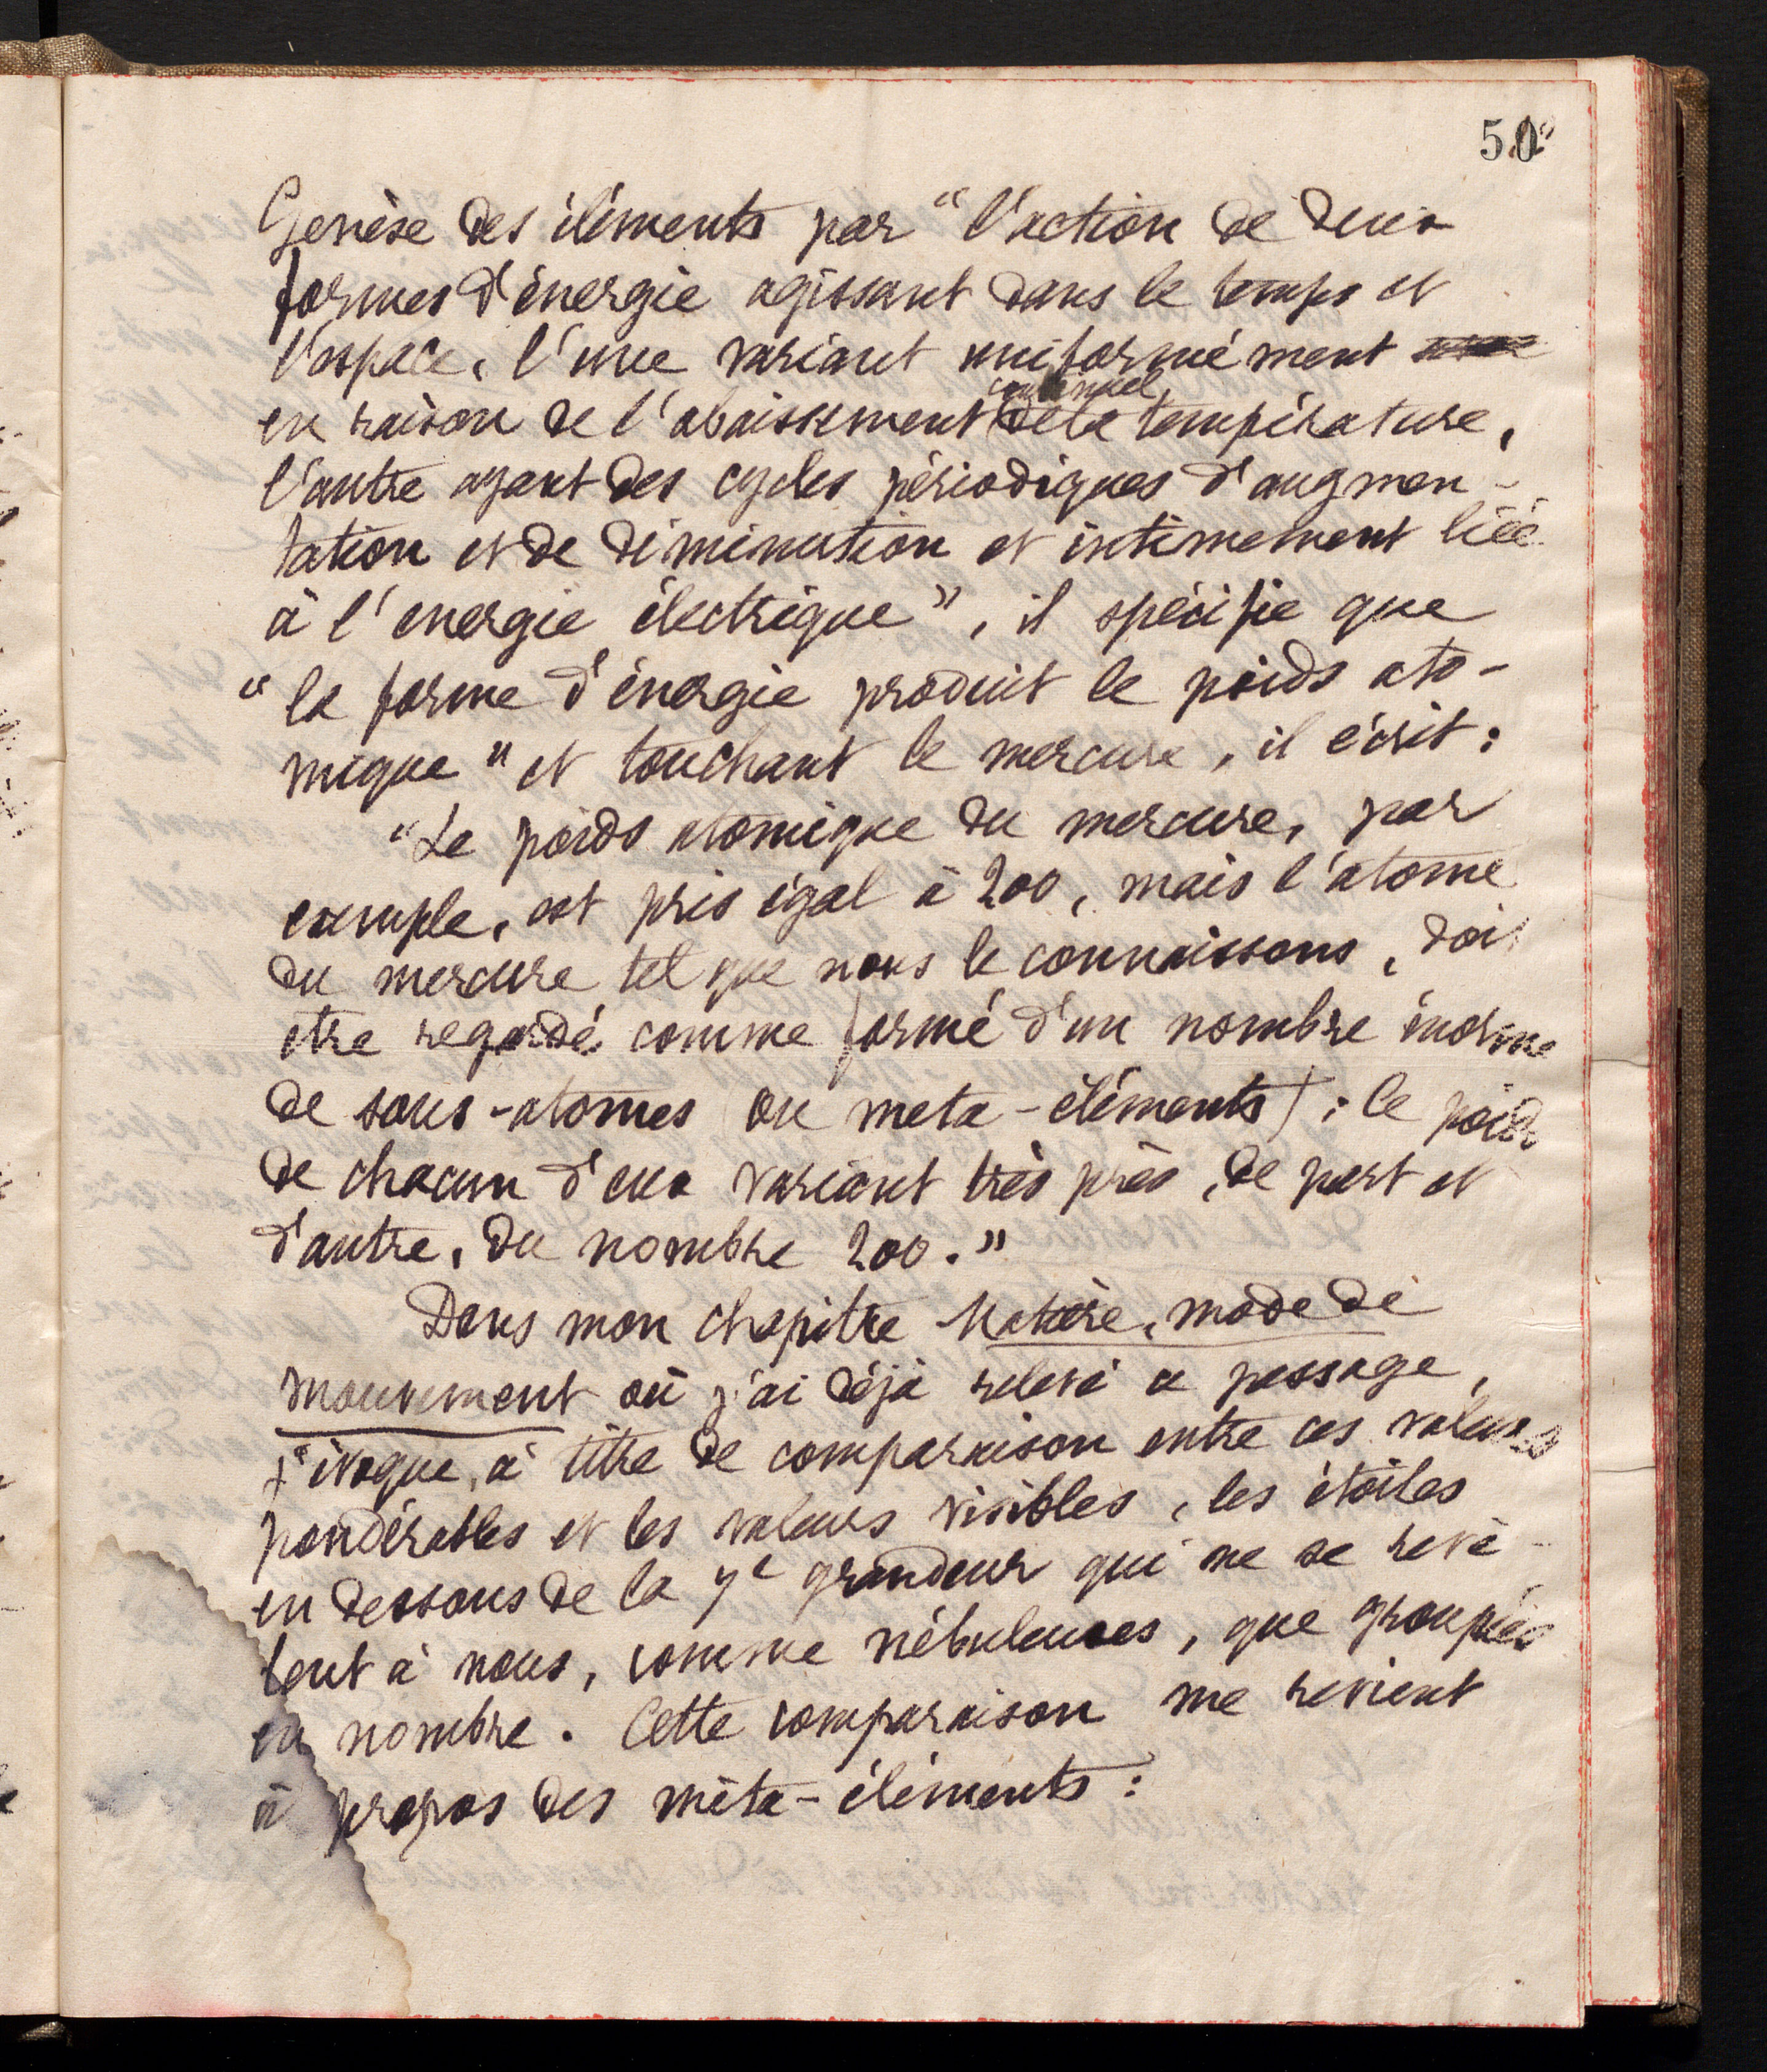 50
Genèse des éléments par "l'action de deux
formes d'énergie agissant dans le temps et
l'espace, l'une variant uniformément
en raison de l'abaissement continuel de la température,
l'autre ayant des cycles périodiques d'augmen-
tation et de diminution et intimement liée
à l'energie électrique", il spécifie que
"la forme d'énergie produit le poids ato-
mique" et touchant le mercure, il écrit :
"Le poids atomique du mercure, par
exemple, est pris égal à 200, mais l'atome
du mercure tel que nous le connaissons, doit
etre regardé comme formé d'un nombre énorme
de sous-atomes (ou meta-éléments) : le poids
de chacun d'eux variant très près, de part et
d'autre, du nombre 200."
Dans mon chapitre Matière, mode de
mouvement où j'ai déjà relevé ce passage,
j'évoque, à titre de comparaison entre ces valeurs
pondérables et les valeurs visibles, les étoiles
en dessous de la 7e grandeur qui ne se revè-
lent à nous, comme nébuleuses, que groupées
en nombre. Cette comparaison me revient
à propos des méta-éléments :